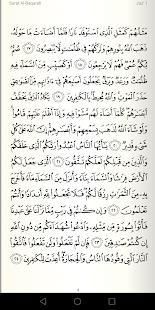 Surat Al-Baqarah Juz' 1
مَثَلُهُمْ كَمَثَلِ ٱلَّذِى ٱسْتَوْقَدَ نَارًا فَلَمَّآ أَضَآءَتْ مَا حَوْلَهُۥ
ذَهَبَ ٱللَّهُ بِنُورِهِمْ وَتَرَكَهُمْ فِى ظُلُمَٰتٍ لَّا يُبْصِرُونَ ١٧
صُمٌّۢ بُكْمٌ عُمْىٌ فَهُمْ لَا يَرْجِعُونَ ١٨ أَوْ كَصَيِّبٍ مِّنَ ٱلسَّمَآءِ فِيهِ
ظُلُمَٰتٌ وَرَعْدٌ وَبَرْقٌ يَجْعَلُونَ أَصَٰبِعَهُمْ فِىٓ ءَاذَانِهِم مِّنَ ٱلصَّوَٰعِقِ
حَذَرَ ٱلْمَوْتِ وَٱللَّهُ مُحِيطٌۢ بِٱلْكَٰفِرِينَ ١٩ يَكَادُ ٱلْبَرْقُ يَخْطَفُ
أَبْصَٰرَهُمْ كُلَّمَآ أَضَآءَ لَهُم مَّشَوْا۟ فِيهِ وَإِذَآ أَظْلَمَ عَلَيْهِمْ قَامُوا۟
وَلَوْ شَآءَ ٱللَّهُ لَذَهَبَ بِسَمْعِهِمْ وَأَبْصَٰرِهِمْ إِنَّ ٱللَّهَ عَلَىٰ كُلِّ شَىْءٍ
قَدِيرٌ ٢٠ يَٰٓأَيُّهَا ٱلنَّاسُ ٱعْبُدُوا۟ رَبَّكُمُ ٱلَّذِى خَلَقَكُمْ وَٱلَّذِينَ
مِن قَبْلِكُمْ لَعَلَّكُمْ تَتَّقُونَ ٢١ ٱلَّذِى جَعَلَ لَكُمُ ٱلْأَرْضَ
فِرَٰشًا وَٱلسَّمَآءَ بِنَآءً وَأَنزَلَ مِنَ ٱلسَّمَآءِ مَآءً فَأَخْرَجَ
بِهِۦ مِنَ ٱلثَّمَرَٰتِ رِزْقًا لَّكُمْ فَلَا تَجْعَلُوا۟ لِلَّهِ أَندَادًا وَأَنتُمْ
تَعْلَمُونَ ٢٢ وَإِن كُنتُمْ فِى رَيْبٍ مِّمَّا نَزَّلْنَا عَلَىٰ عَبْدِنَا
فَأْتُوا۟ بِسُورَةٍ مِّن مِّثْلِهِۦ وَٱدْعُوا۟ شُهَدَآءَكُم مِّن دُونِ ٱللَّهِ
إِن كُنتُمْ صَٰدِقِينَ ٢٣ فَإِن لَّمْ تَفْعَلُوا۟ وَلَن تَفْعَلُوا۟ فَٱتَّقُوا۟
ٱلنَّارَ ٱلَّتِى وَقُودُهَا ٱلنَّاسُ وَٱلْحِجَارَةُ أُعِدَّتْ لِلْكَٰفِرِينَ ٢٤
4